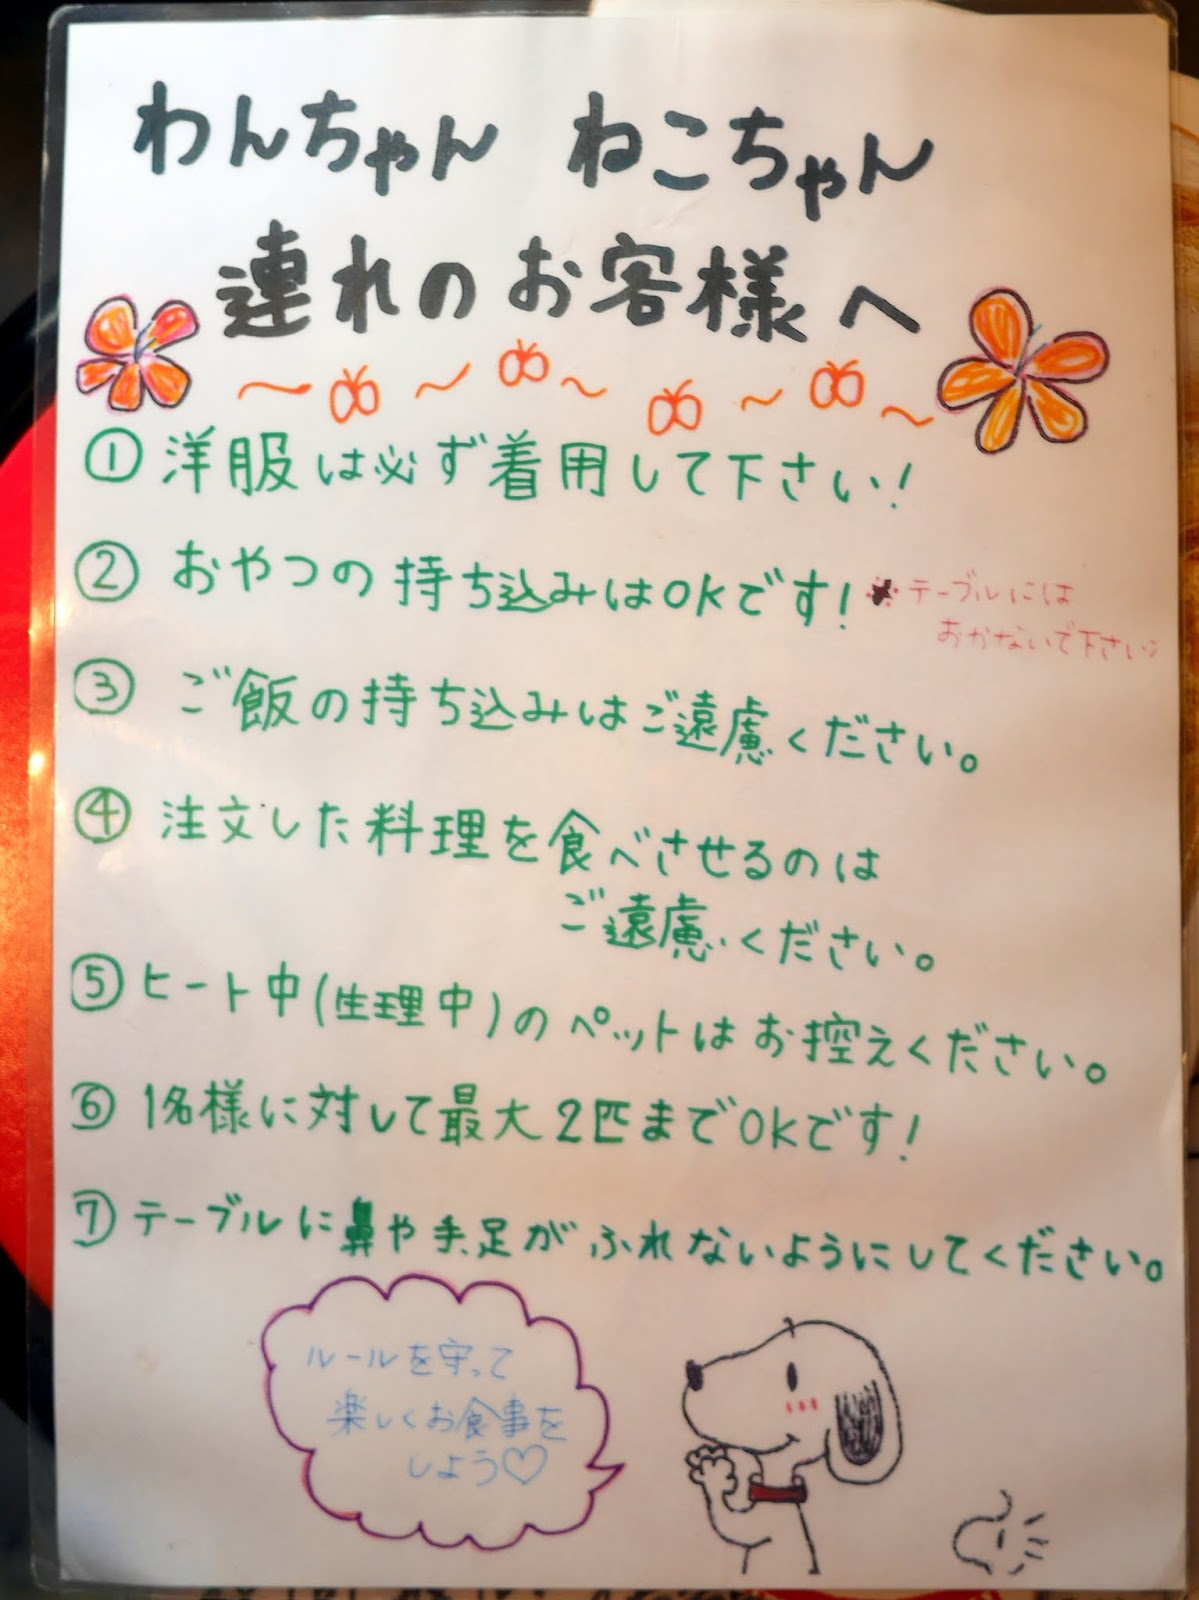 わんちゃん ねこちゃん
連れのお客様へ
① 洋服は必ず着用して下さい!
② おやつの持ち込みはOKです! ※テーブルには
おかないで下さい
③ ご飯の持ち込みはご遠慮ください。
④ 注文した料理を食べさせるのは
ご遠慮ください。
⑤ ヒート中(生理中)のペットはお控えください。
⑥ 1名様に対して最大2匹までOKです!
⑦ テーブルに鼻や手足がふれないようにしてください。
ルールを守って
楽しくお食事を
しよう♡